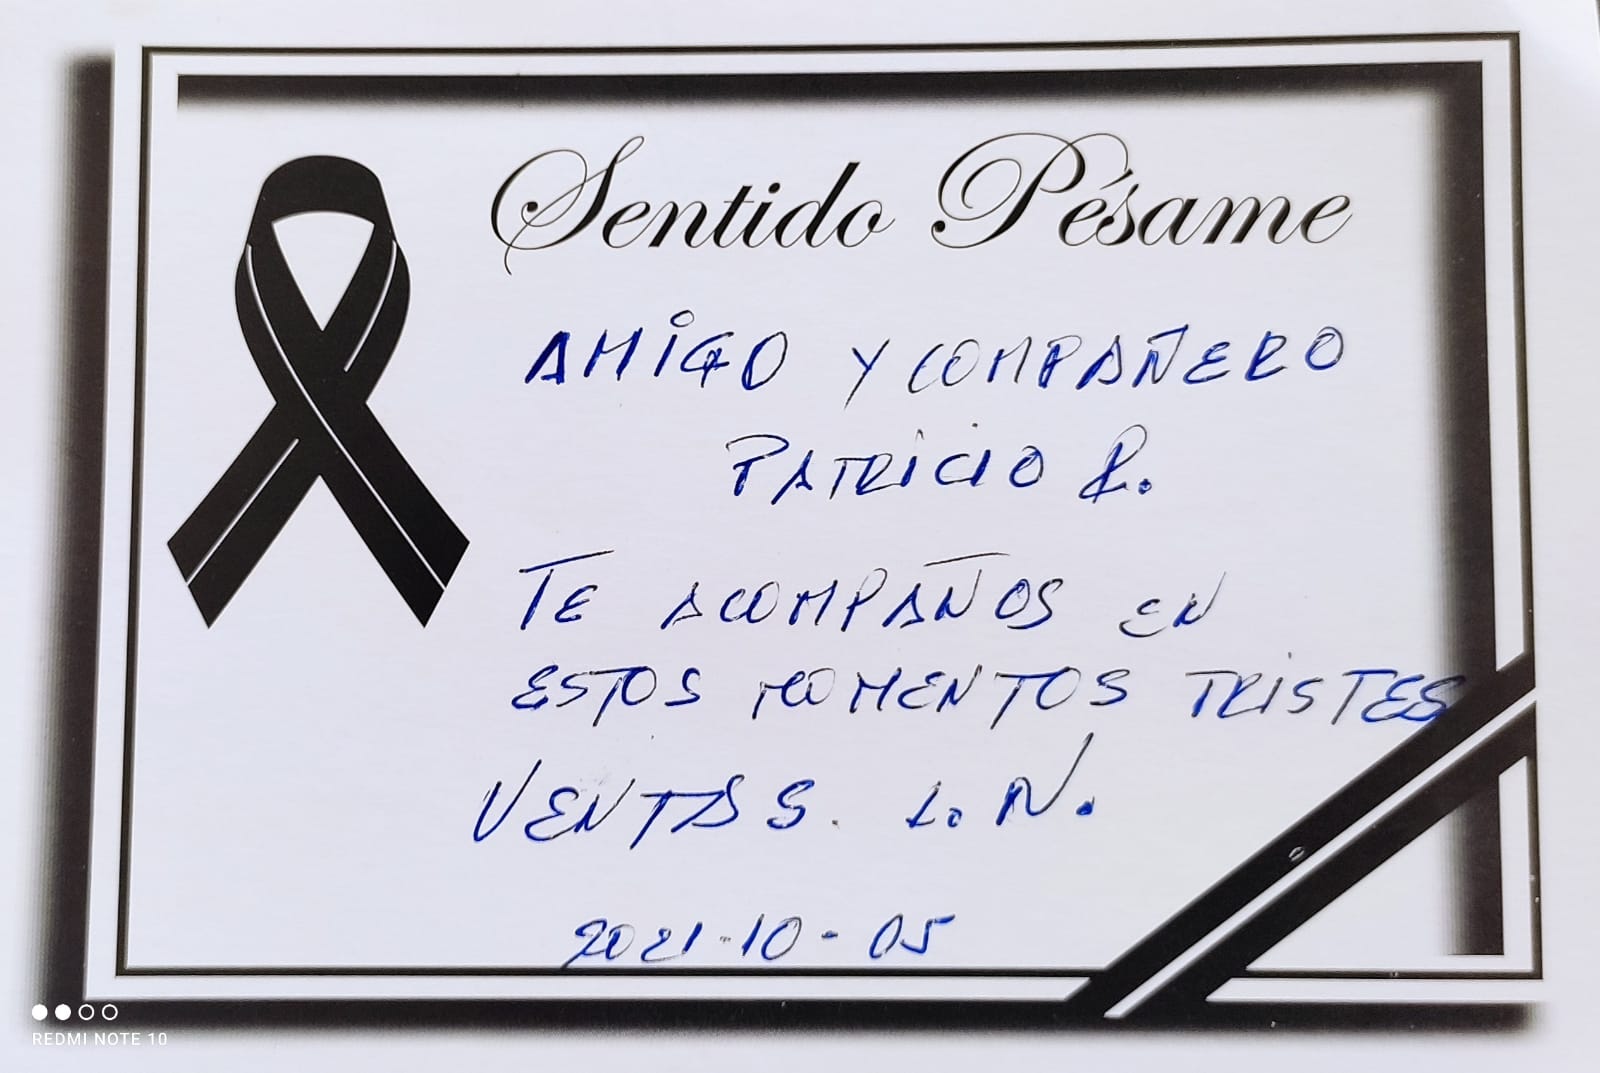 Sentido Pésame
AMIGO Y COMPAÑERO
PATRICIO R.
TE ACOMPAÑOS EN
ESTOS MOMENTOS TRISTES
VENTAS. L.N.
2021-10-05
REDMI NOTE 10